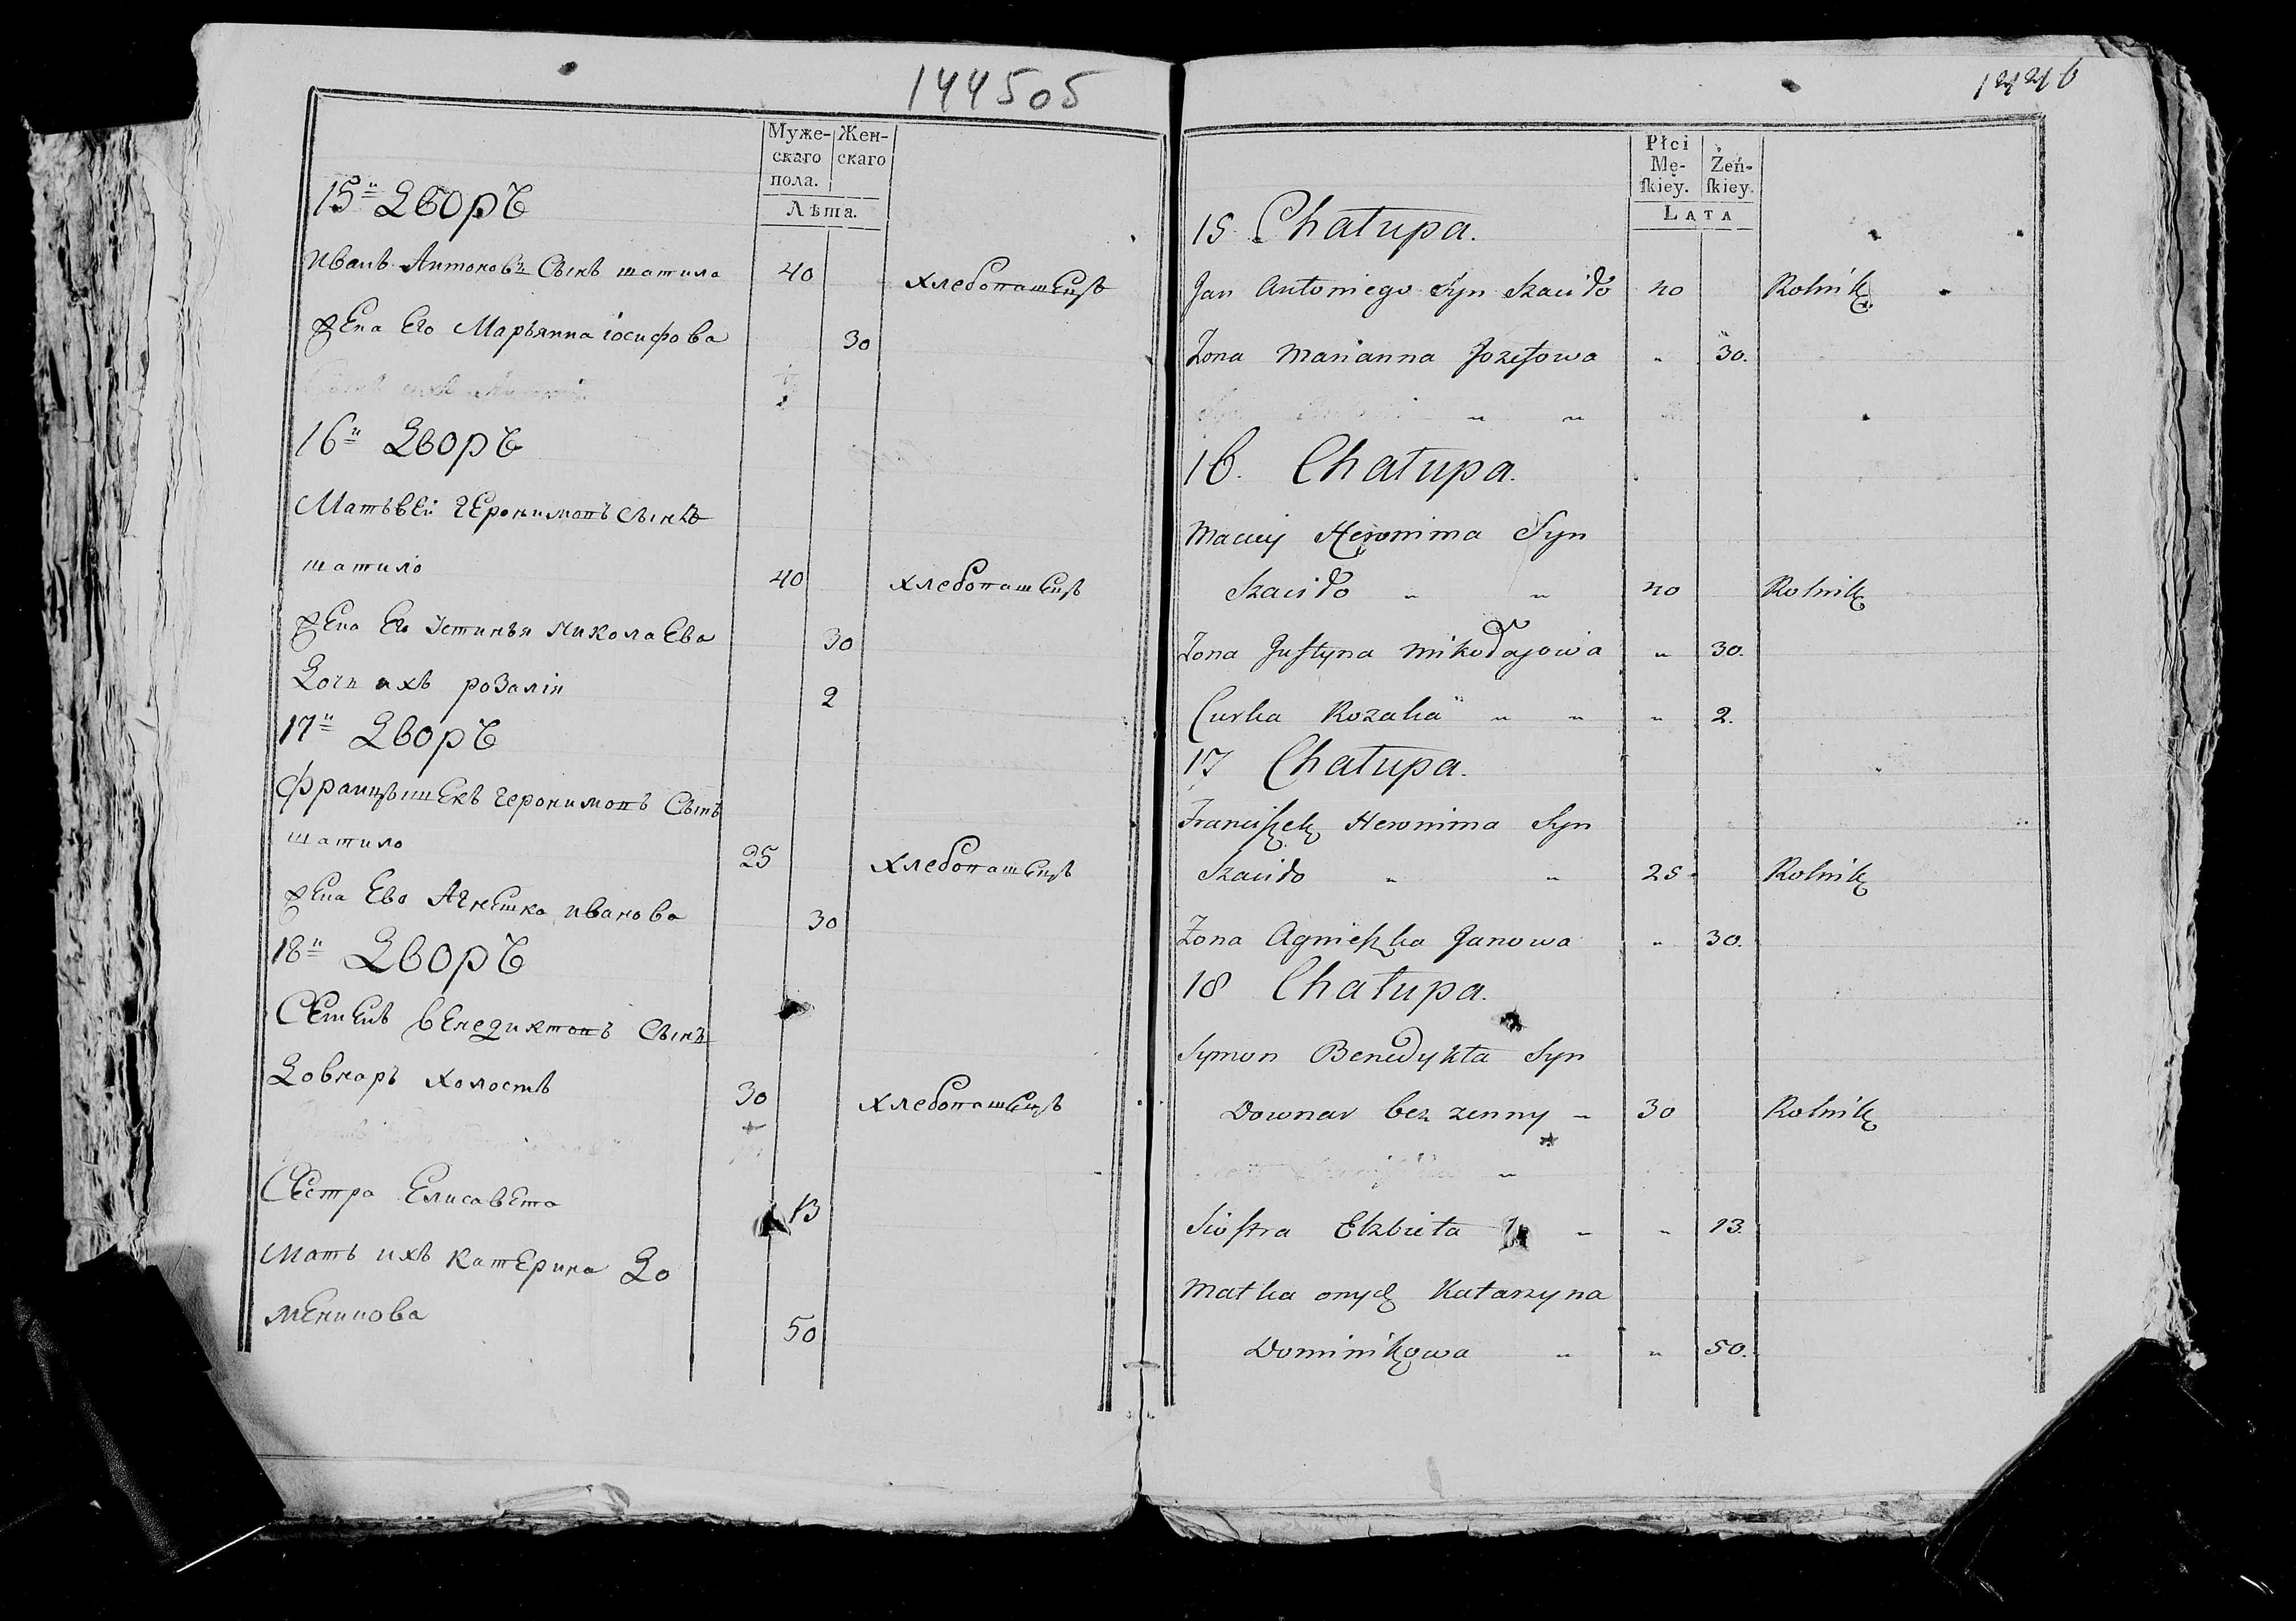 144505
Муже-скаго пола. Жен-скаго
Лѣта.
15й Дворъ
Иванъ Антоновъ Сынъ шатило 40 хлебопашецъ
жена Его Марьянна іосифова 30
16й Дворъ
Матьвей геронимовъ сынъ
шатило 40 хлебопашецъ
жена Его Устинья Николаева 30
Дочь ихъ розалія 2
17й Дворъ
францышекъ геронимовъ Сынъ
шатило 25 хлебопашецъ
жена Ево Агнешка иванова 30
18й Дворъ
Семенъ венедиктовъ сынъ
Довнаръ холостъ 30 хлебопашецъ
Сестра Елисавета 13
Мать ихъ катерина До
меникова 50
Płci Mę-skiey. Żeń-skiey.
LATA
15 Chałupa.
Jan Antoniego Syn Szaciło 40 Rolnik
Zona Marianna Jozefowa " 30.
16. Chałupa.
Maciey Heronima Syn
Szaciło " " 40 Rolnik
Zona Justyna Mikołajowa " 30.
Curka Rozalia " " " 2.
17 Chałupa.
Franciszek Heronima Syn
Szaciło " " 25 Rolnik
Zona Agnieszka Janowa " 30.
18 Chałupa.
Symon Benedykta Syn
Downar bez zenny " 30 Rolnik
Siostra Elzbieta " " 13.
Matka onych Katarzyna
Dominikowa " " 50.